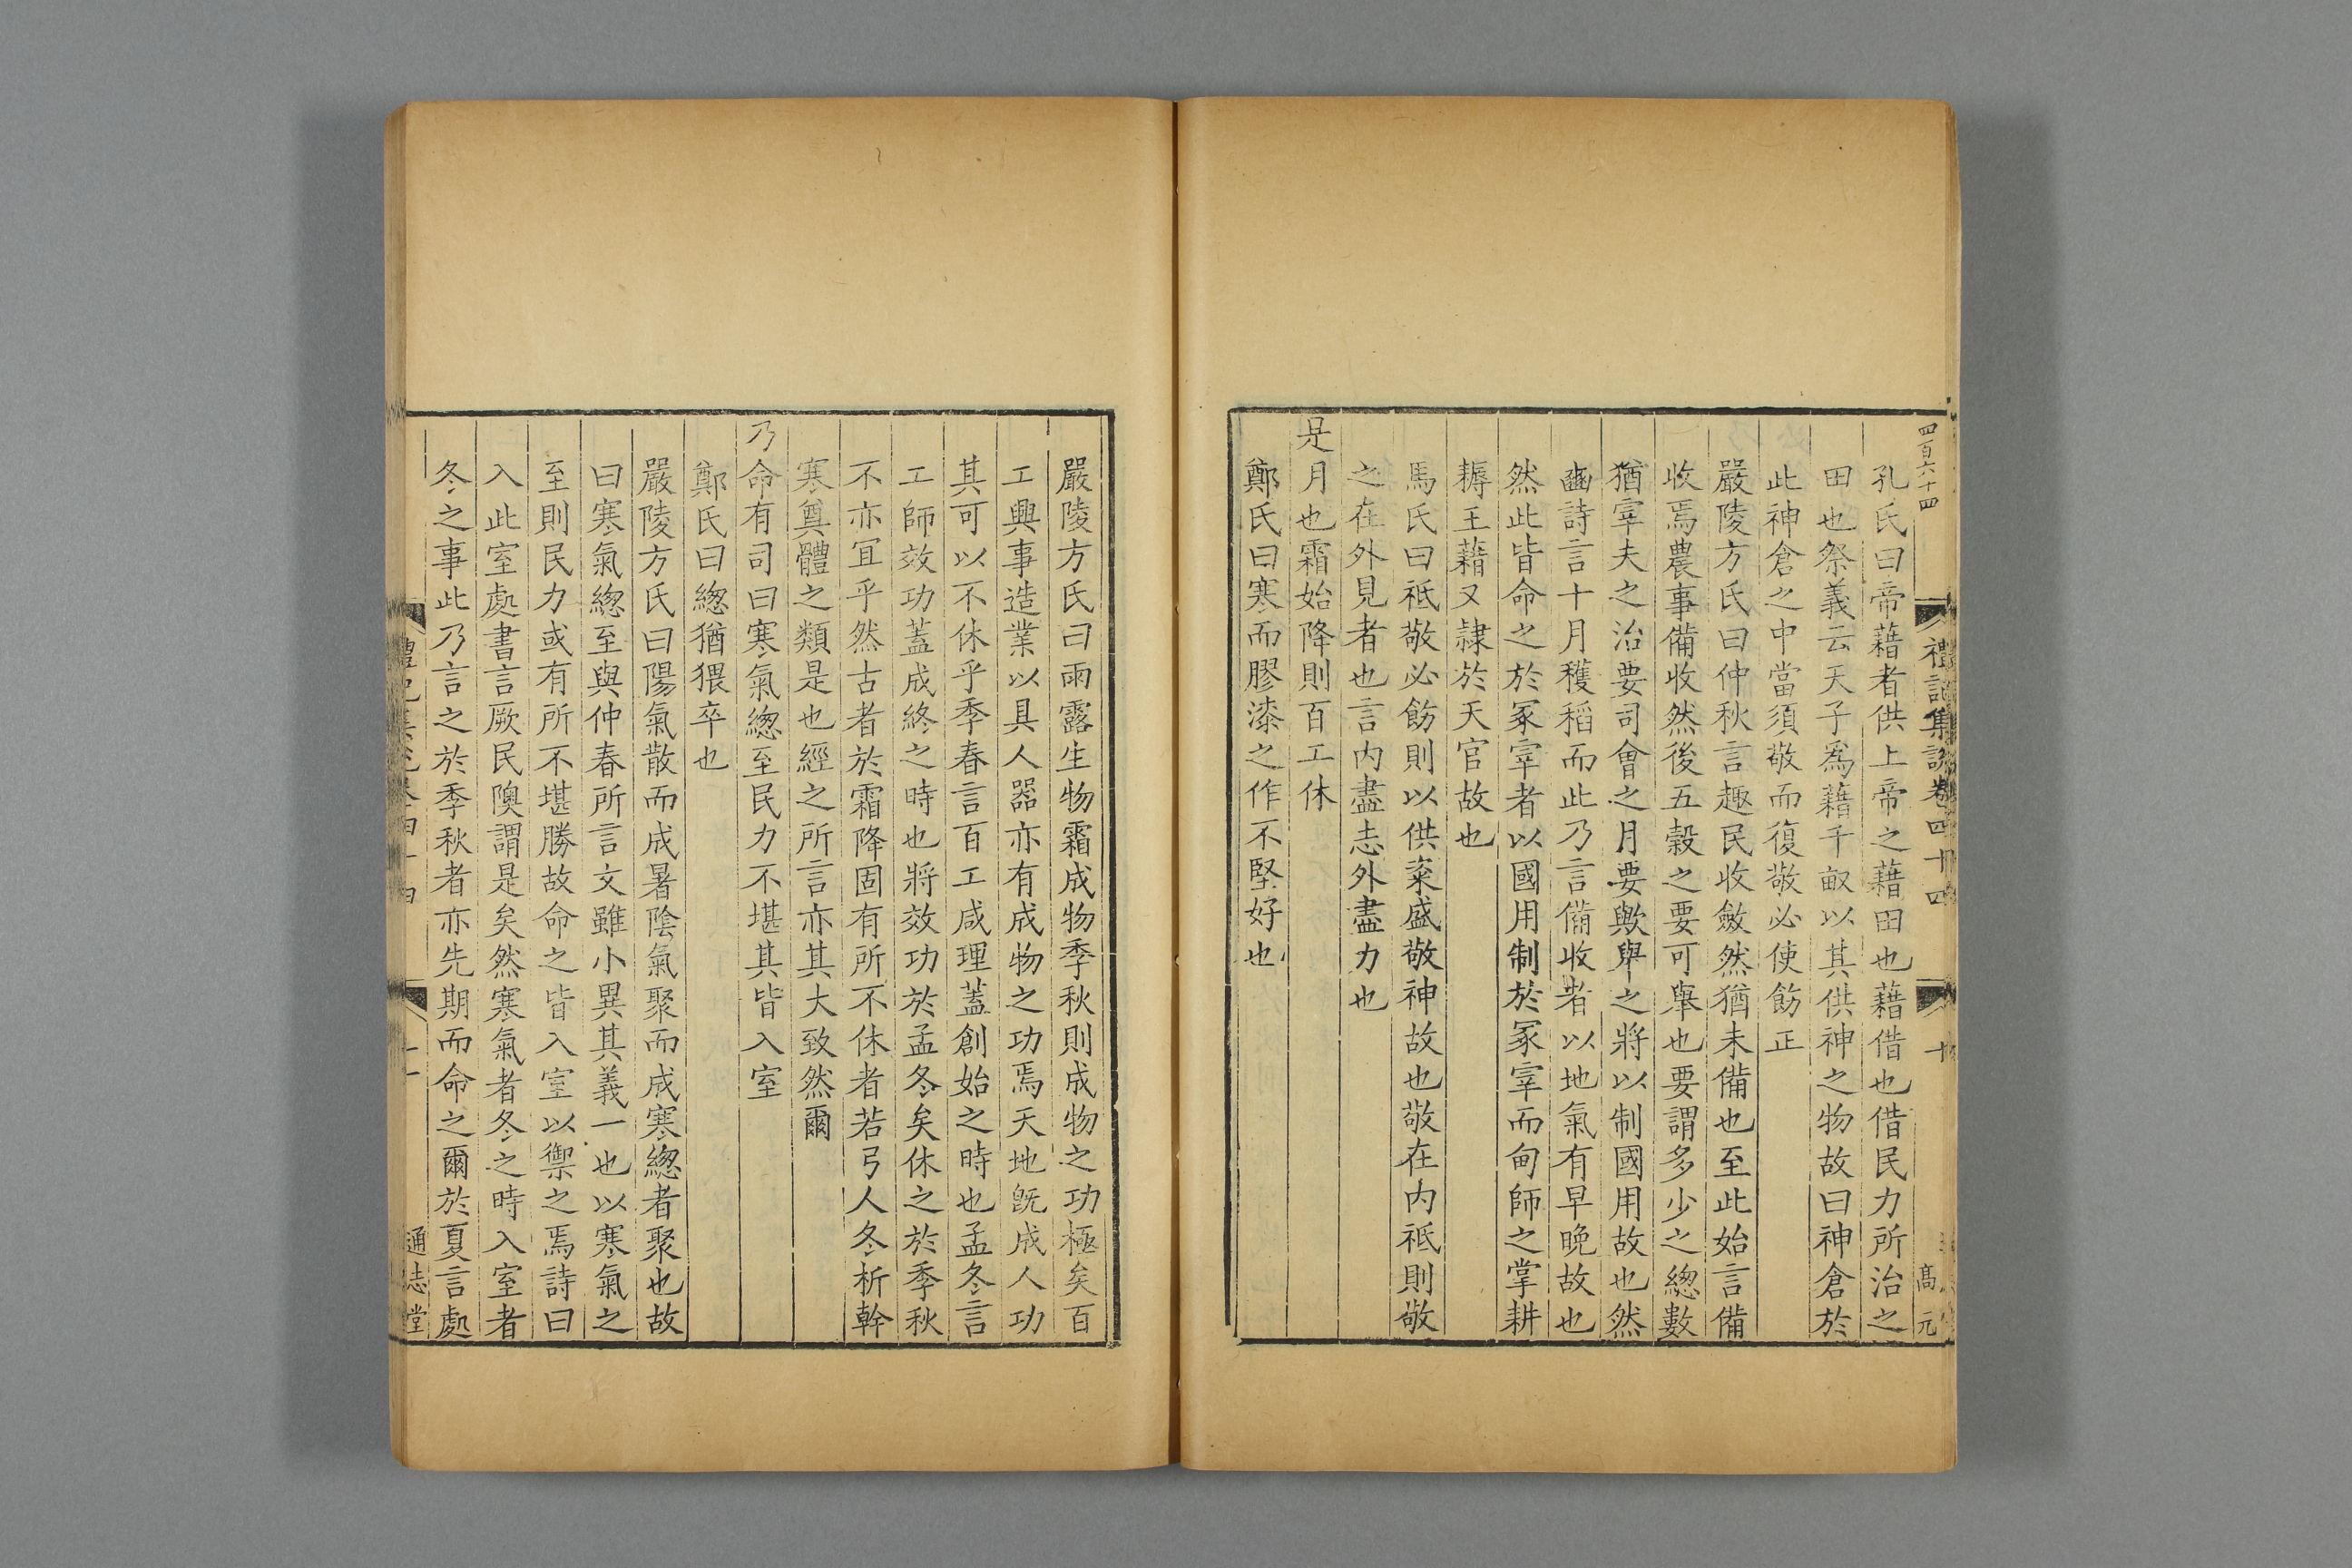 四百六十四
禮記集說卷四十四
十
高元
孔氏曰帝藉者供上帝之藉田也藉借也借民力所治之
田也祭義云天子爲藉千畝以其供神之物故曰神倉於
此神倉之中當須敬而復敬必使飭正
嚴陵方氏曰仲秋言趣民收斂然猶未備也至此始言備
收焉農事備收然後五穀之要可舉也要謂多少之緫數
猶宰夫之治要司會之月要歟舉之將以制國用故也然
豳詩言十月穫稻而此乃言備收者以地氣有早晚故也
然此皆命之於冢宰者以國用制於冢宰而甸師之掌耕
耨王藉又隷於天官故也
馬氏曰祗敬必飭則以供粢盛敬神故也敬在内祗則敬
之在外見者也言内盡志外盡力也
是月也霜始降則百工休
鄭氏曰寒而膠漆之作不堅好也
嚴陵方氏曰雨露生物霜成物季秋則成物之功極矣百
工興事造業以具人器亦有成物之功焉天地旣成人功
其可以不休乎季春言百工咸理蓋創始之時也孟冬言
工師效功蓋成終之時也將效功於孟冬矣休之於季秋
不亦宜乎然古者於霜降固有所不休者若弓人冬析幹
寒奠體之類是也經之所言亦其大致然爾
乃命有司曰寒氣緫至民力不堪其皆入室
鄭氏曰緫猶猥卒也
嚴陵方氏曰陽氣散而成暑陰氣聚而成寒緫者聚也故
曰寒氣緫至與仲春所言文雖小異其義一也以寒氣之
至則民力或有所不堪勝故命之皆入室以禦之焉詩曰
入此室處書言厥民隩謂是矣然寒氣者冬之時入室者
冬之事此乃言之於季秋者亦先期而命之爾於夏言處
通志堂